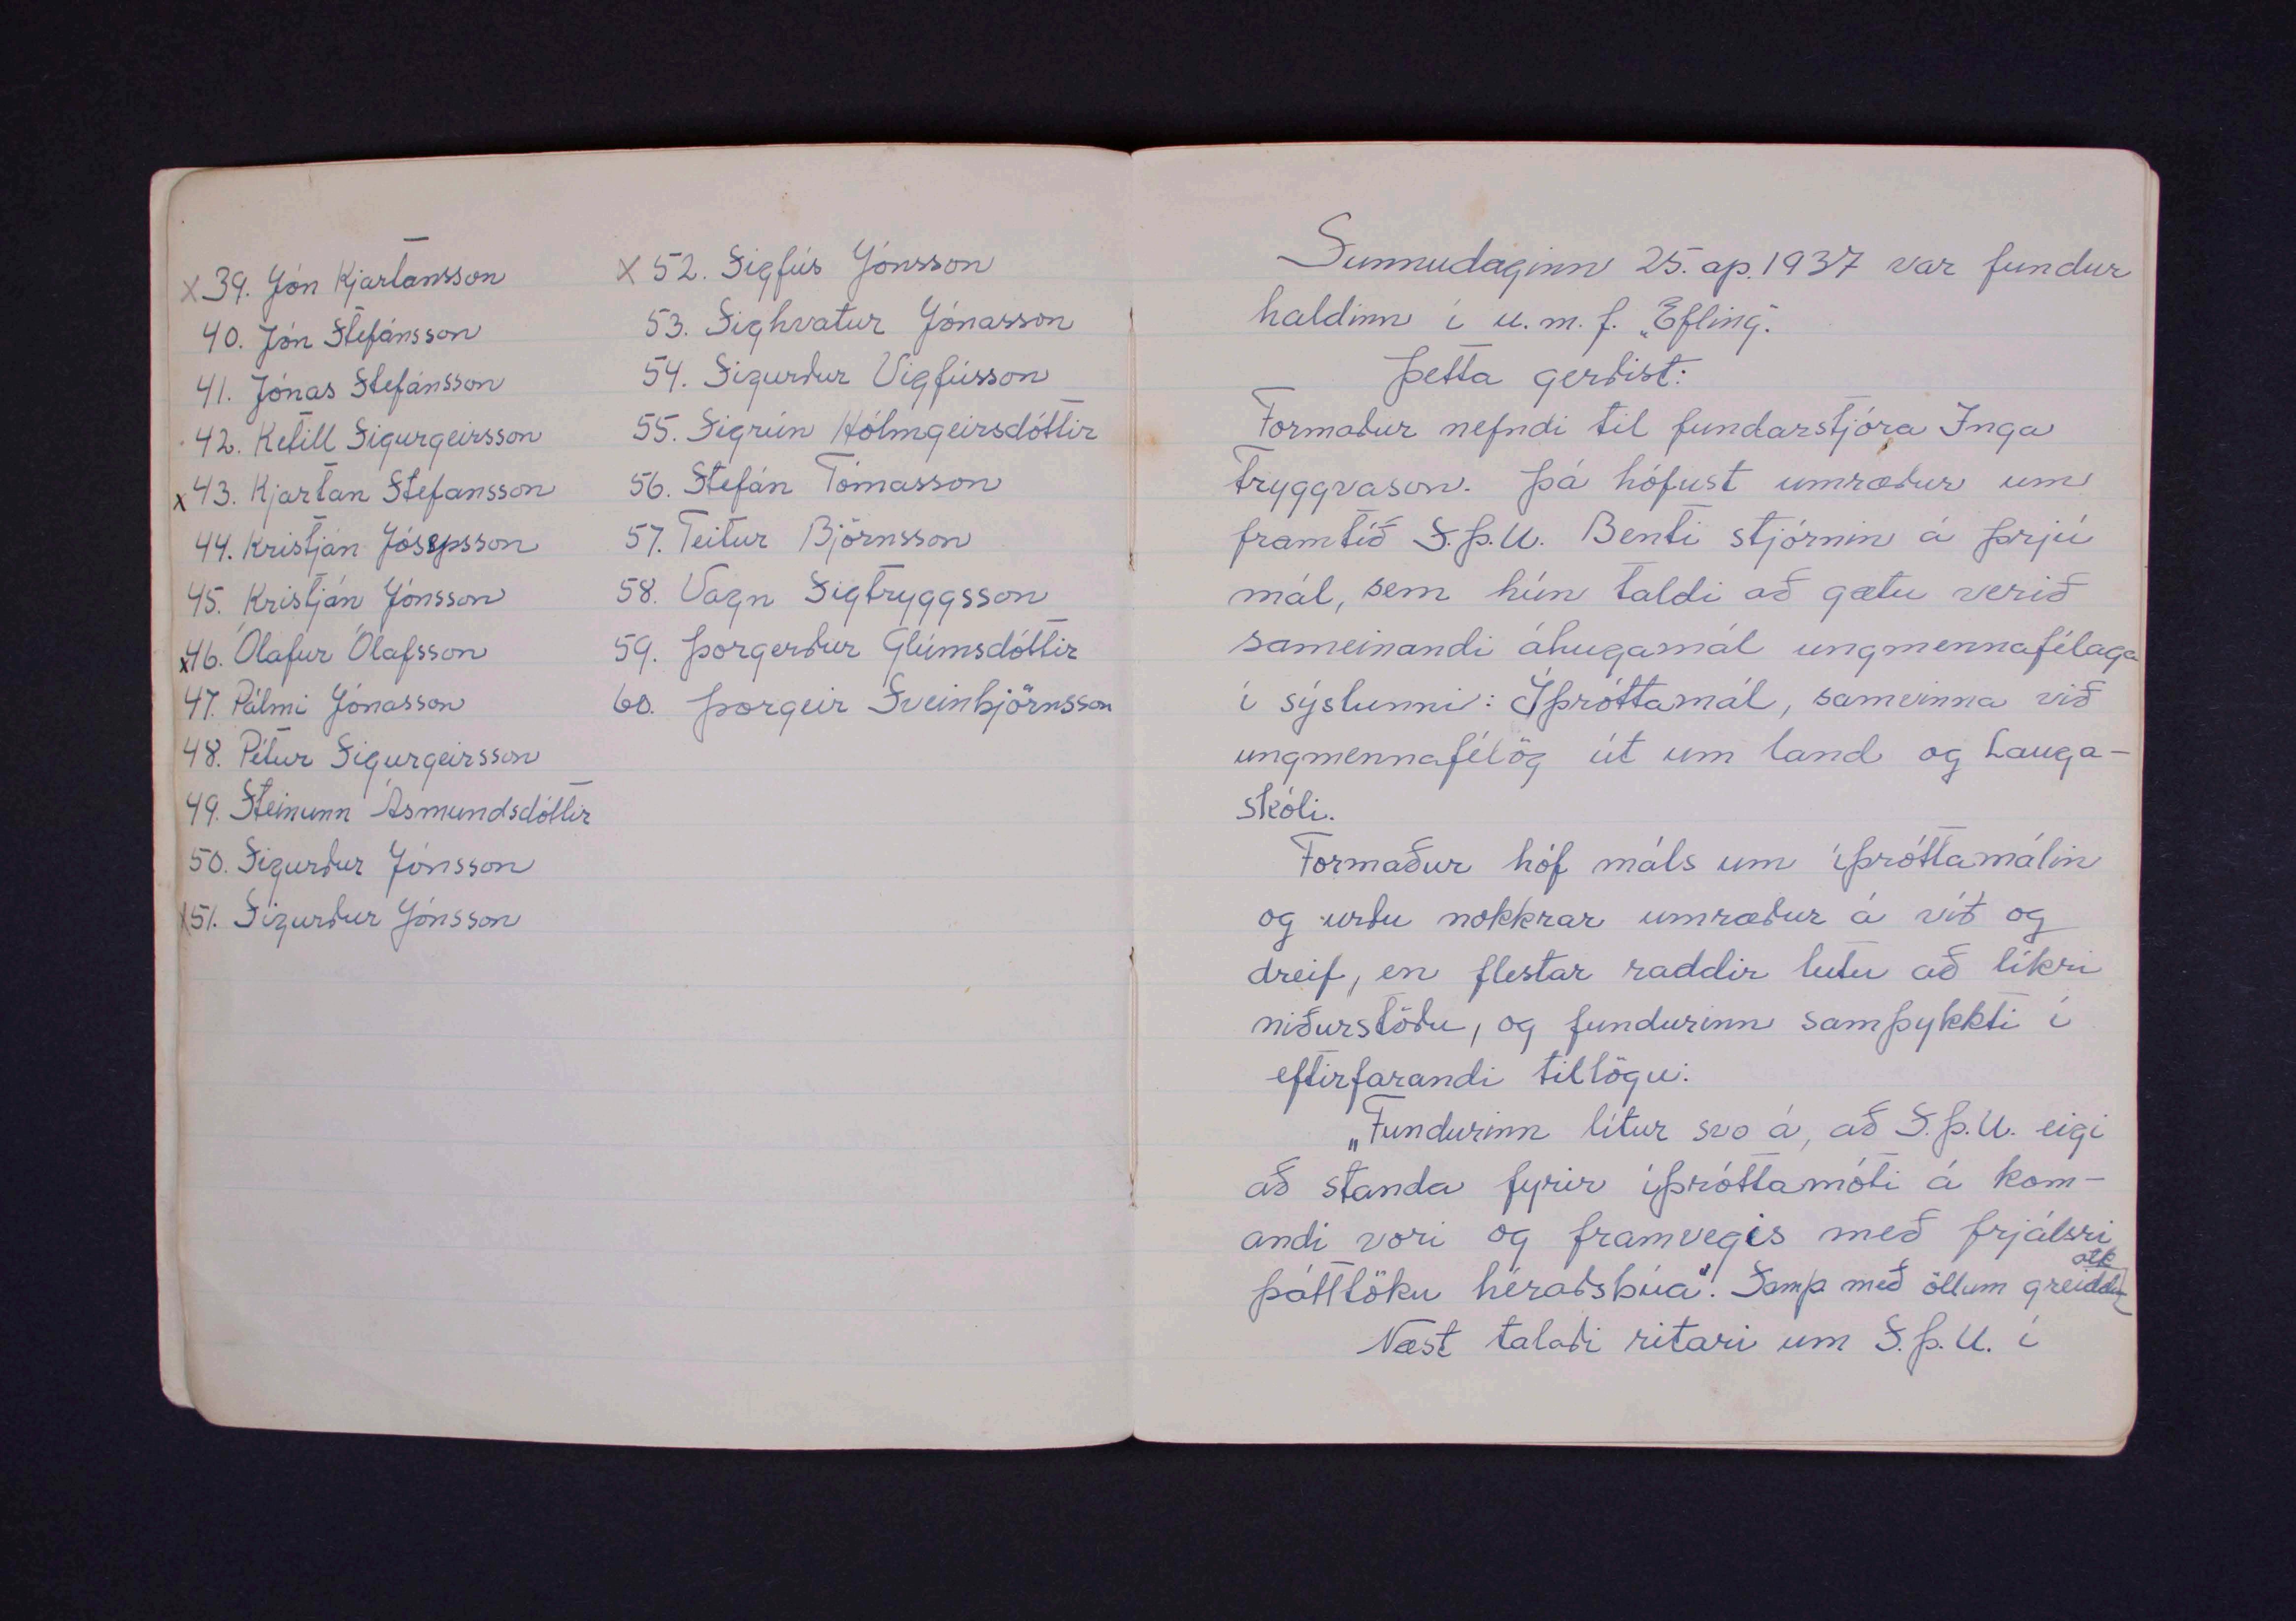 x 39. Jón Kjartansson
40. Jón Stefánsson
41. Jónas Stefánsson
42. Ketill Sigurgeirsson
x 43. Kjartan Stefansson
44. Kristján Jósepsson
45. Kristján Jónsson
x 46. Ólafur Ólafsson
47. Pálmi Jónasson
48. Pétur Sigurgeirsson
49. Steinunn Ásmundsdóttir
50. Sigurður Jónsson
x 51. Sigurður Jónsson
x 52. Sigfús Jónsson
53. Sighvatur Jónasson
54. Sigurður Vigfússon
55. Sigrún Hólmgeirsdóttir
56. Stefán Tómasson
57. Teitur Björnsson
58. Vagn Sigtryggsson
59. Þorgerður Glúmsdóttir
60. Þorgeir Sveinbjörnsson
Sunnudaginn 25. ap. 1937 var fundur
haldinn í u. m. f. „Efling“.
Þetta gerðist:
Formaður nefndi til fundarstjóra Inga
Tryggvason. Þá hófust umræður um
framtíð S.Þ.U. Benti stjórnin á þrjú
mál, sem hún taldi að gætu verið
sameinandi áhugamál ungmennafélaga
í sýslunni: Íþróttamál, samvinna við
ungmennafélög út um land og Lauga-
skóli.
Formaður hóf máls um íþróttamálin
og urðu nokkrar umræður á víð og
dreif, en flestar raddir lutu að líkri
niðurstöðu, og fundurinn samþykkti í
eftirfarandi tillögu:
„Fundurinn lítur svo á, að S.Þ.U. eigi
að standa fyrir íþróttamóti á kom-
andi vori og framvegis með frjálsri
þátttöku héraðsbúa“. Samþ með öllum greiddum atk
Næst talaði ritari um S.Þ.U. í